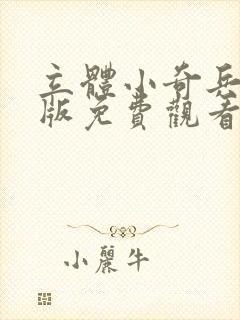 立體小奇兵
版免費觀看
小麗牛